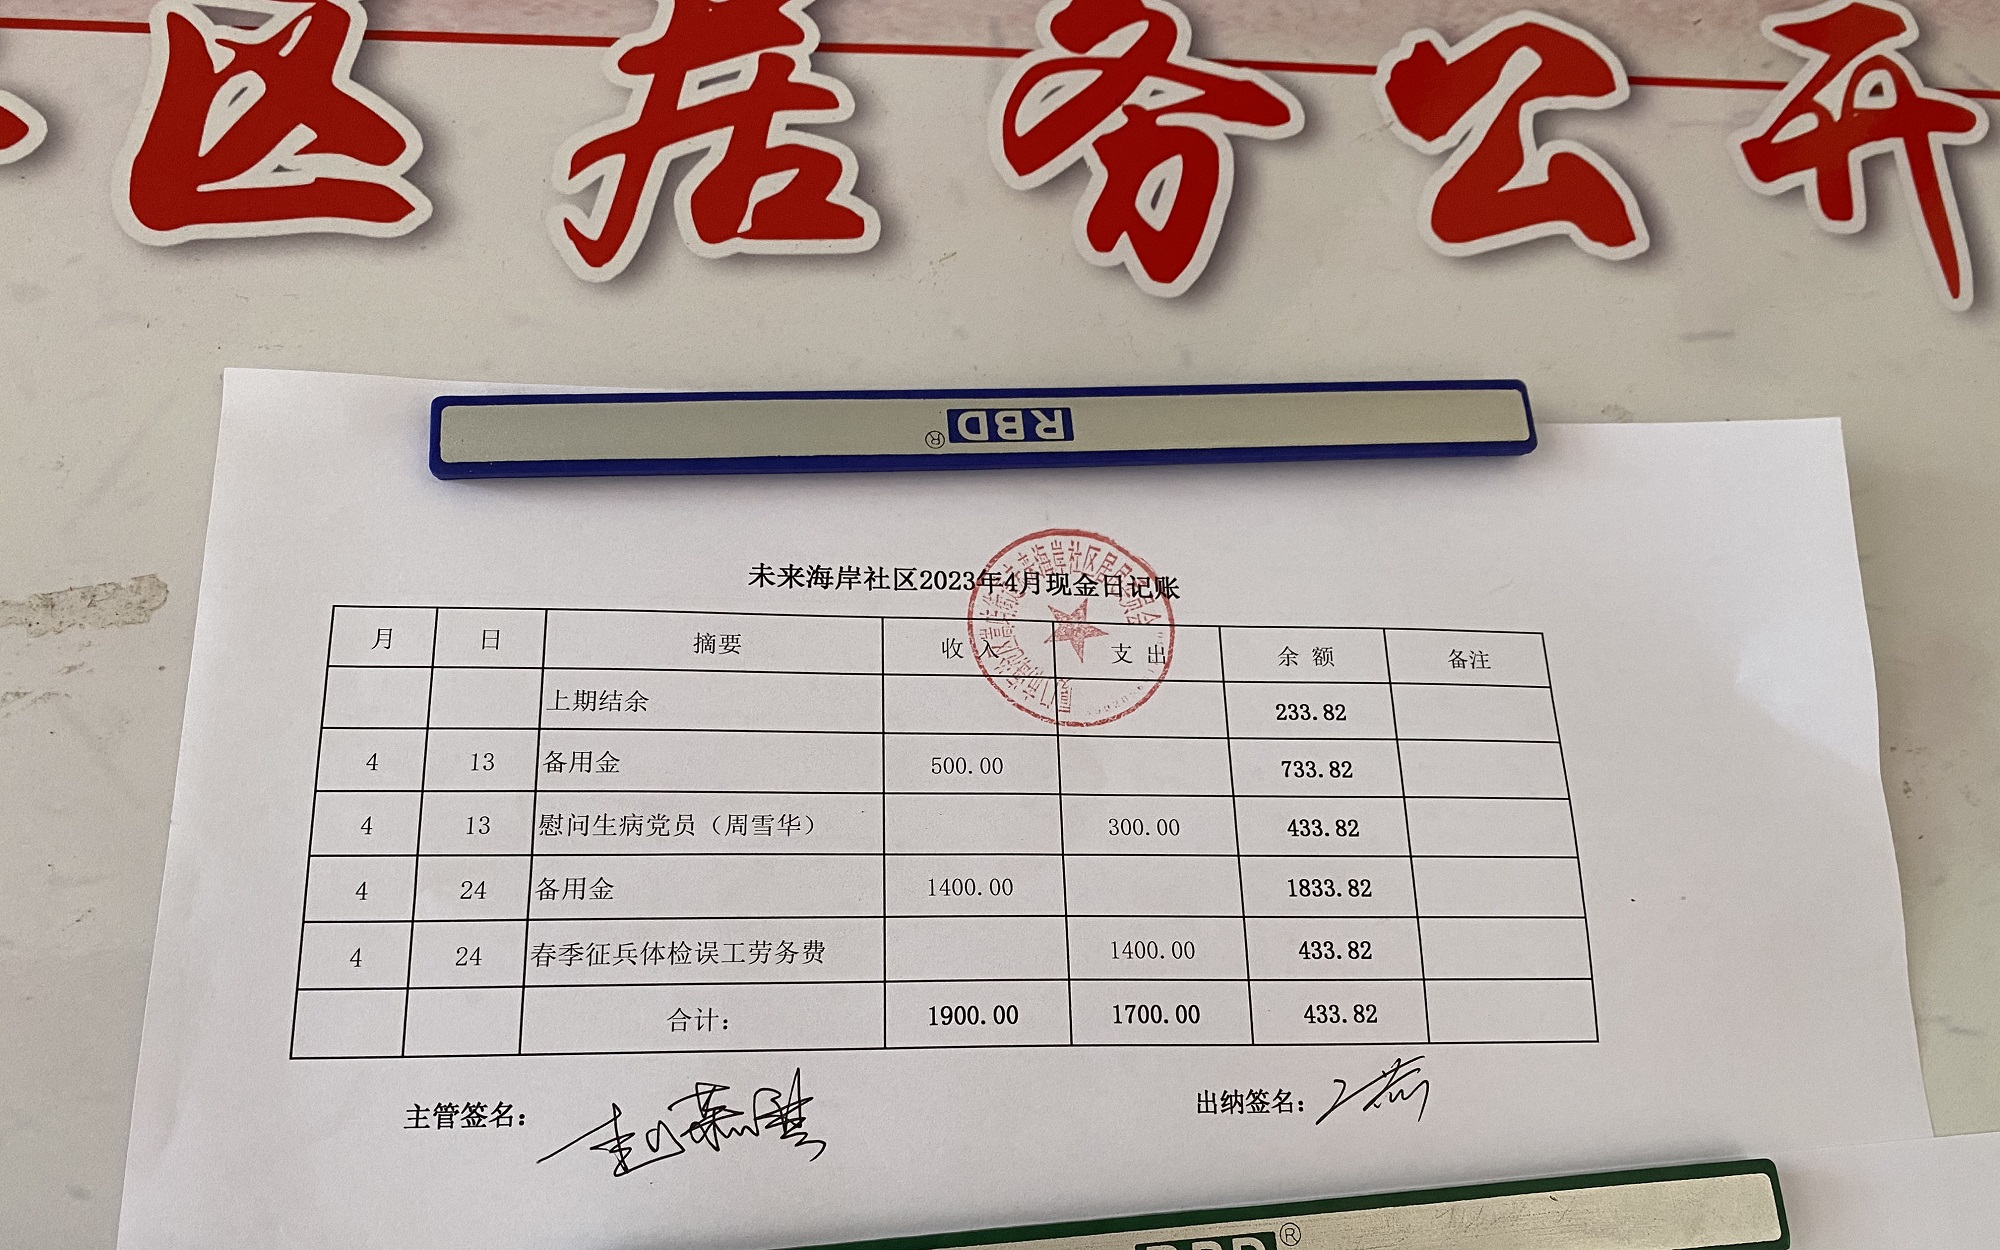 区居务公开
RBD®
未来海岸社区2023年4月现金日记账
月 日 摘要 收 入 支 出 余 额 备注
上期结余 233.82
4 13 备用金 500.00 733.82
4 13 慰问生病党员（周雪华） 300.00 433.82
4 24 备用金 1400.00 1833.82
4 24 春季征兵体检误工劳务费 1400.00 433.82
合计： 1900.00 1700.00 433.82
主管签名：
出纳签名：
RBD®